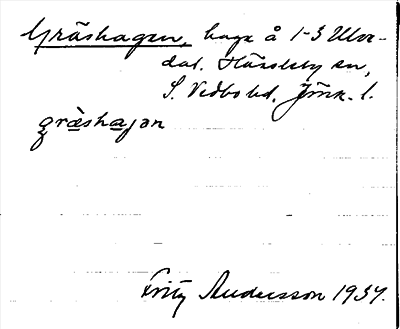 Gräshagen, hage å 1-3 Ulve-
dal. Hässleby sn,
S. Vedbo hd, Jönk. l.
græ̀shaɡən
Fritz Andersson 1937.